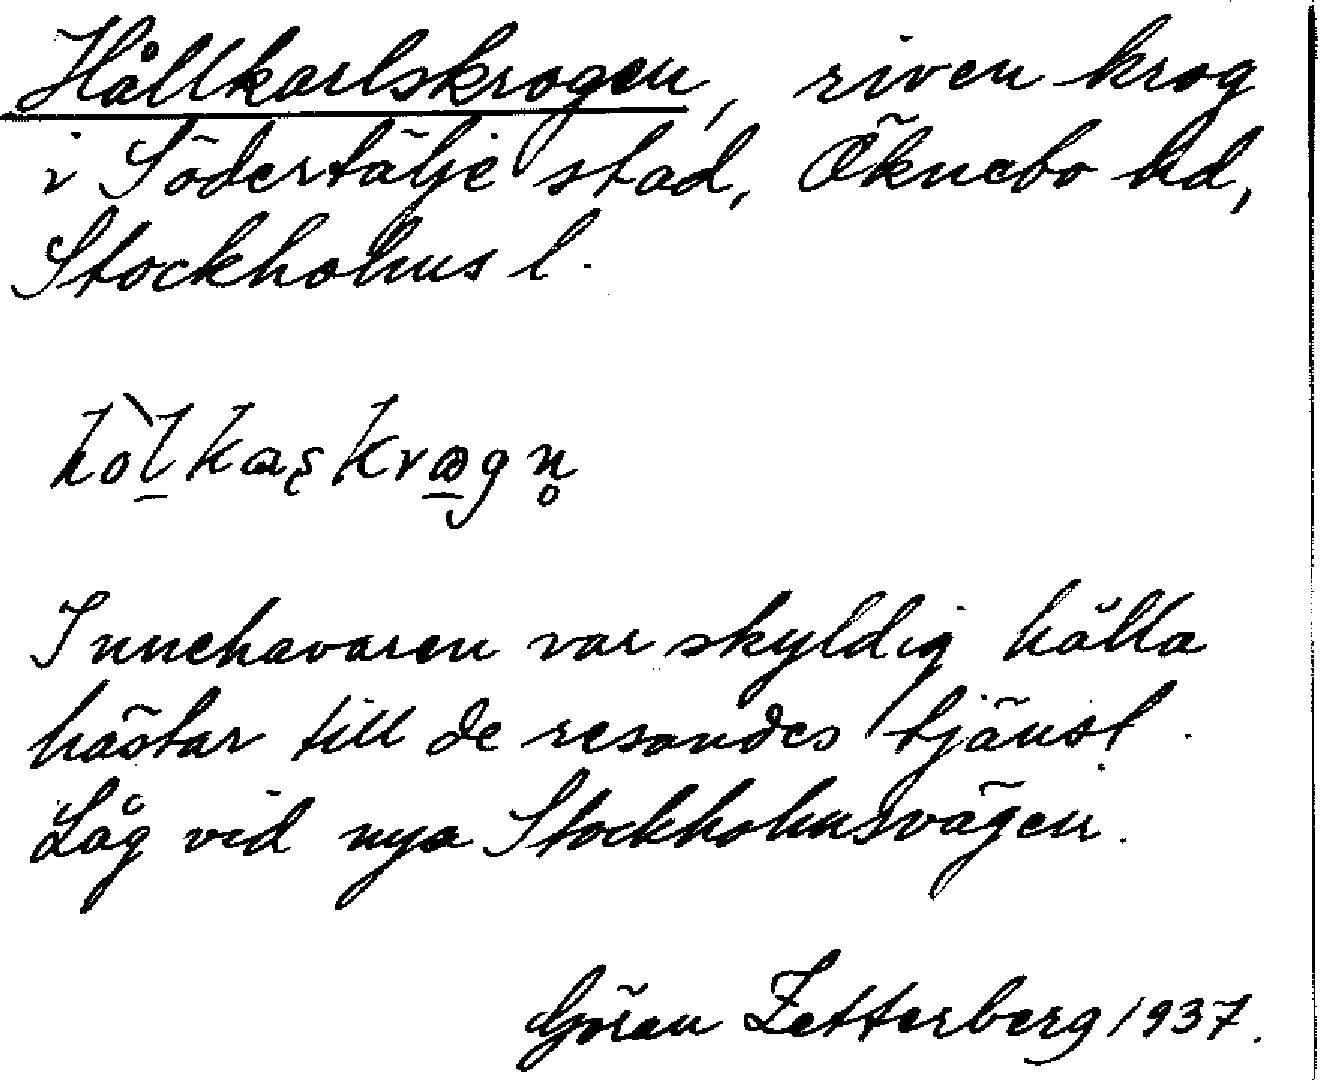 Hållkarlskrogen, riven krog
i Södertälje stad, Öknebo hd,
Stockholms l.
Innehavaren var skyldig hålla
hästar till de resandes tjänst.
Låg vid nya Stockholmsvägen.
Göran Zetterberg 1937.